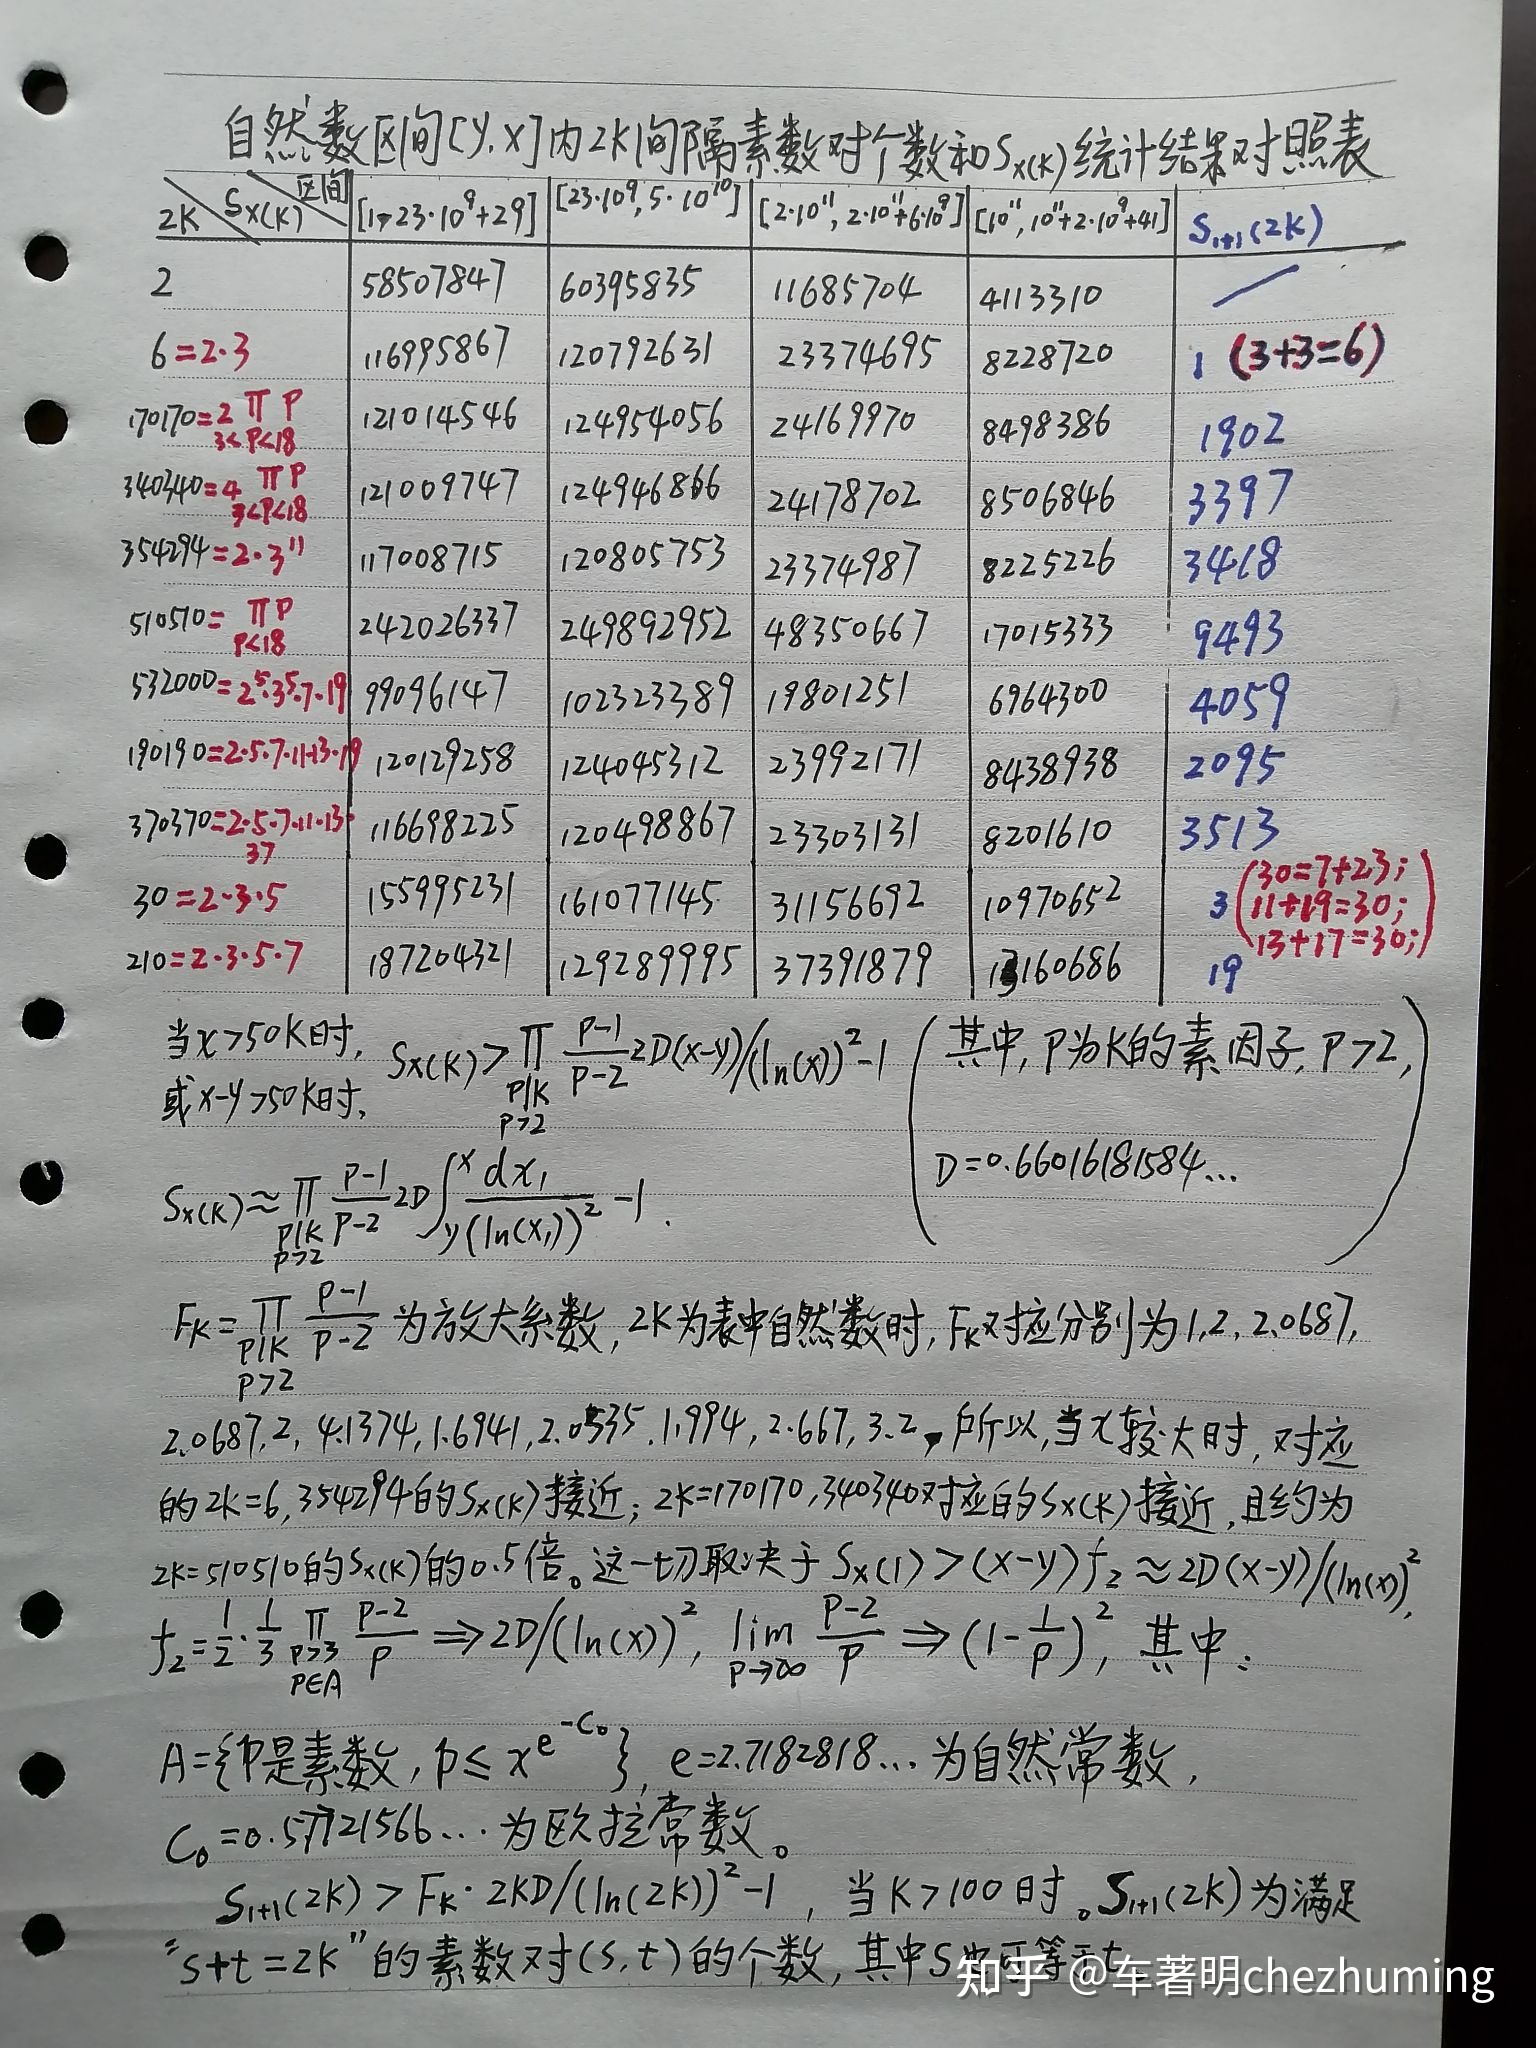 自然数区间[y,x]内2K间隔素数对个数和Sx(K)统计结果对照表
2K Sx(K) 区间 [1,23·10⁹+29] [23·10⁹,5·10¹⁰] [2·10¹¹,2·10¹¹+6·10⁹] [10¹¹,10¹¹+2·10⁹+41] S₁₊₁(2K)
2 58507847 60395835 11685704 4113310 /
6=2·3 116995867 120792631 23374695 8228720 1 (3+3=6)
170170=2∏P 3<P<18 121014546 124954056 24169970 8498386 1902
340340=4∏P 3<P<18 121009747 124946866 24178702 8506846 3397
354294=2·3¹¹ 117008715 120805753 23374987 8225226 3418
510510=∏P P<18 242026337 249892952 48350667 17015333 9493
532000=2⁵·3⁵·7·19 99096147 102323389 19801251 6964300 4059
190190=2·5·7·11·13·19 120129258 124045312 23992171 8438938 2095
370370=2·5·7·11·13·37 116698225 120498867 23303131 8201610 3513
30=2·3·5 155995231 161077145 31156692 10970652 3 (30=7+23; 11+19=30; 13+17=30;)
210=2·3·5·7 187204321 129289995 37391879 13160686 19
当x>50K时,
或x-y>50K时,
Sx(K)>∏ P|K P>2 (P-1)/(P-2) 2D(x-y)/(ln(x))²-1
(其中,P为K的素因子,P>2,
D=0.66016181584...)
Sx(K)≈∏ P|K P>2 (P-1)/(P-2) 2D∫y^x dx₁/(ln(x₁))² -1.
FK=∏ P|K P>2 (P-1)/(P-2) 为放大系数,2K为表中自然数时,FK对应分别为1,2,2.0687,
2.0687,2,4.1374,1.6941,2.0535,1.994,2.667,3.2,所以,当x较大时,对应
的2K=6,354294的Sx(K)接近;2K=170170,340340对应的Sx(K)接近,且约为
2K=510510的Sx(K)的0.5倍。这一切取决于Sx(1)>(x-y)f₂≈2D(x-y)/(ln(x))²,
f₂=1/2·1/3 ∏ P>3 P∈A (P-2)/P ⇒2D/(ln(x))², lim P→∞ (P-2)/P ⇒(1-1/P)²,其中:
A={P是素数,p≤x^e^-C₀}, e=2.7182818...为自然常数,
C₀=0.57721566...为欧拉常数。
S₁₊₁(2K)>FK·2KD/(ln(2K))²-1,当K>100时。S₁₊₁(2K)为满足
“s+t=2K”的素数对(s,t)的个数,其中S也可等于t.
知乎 @车著明chezhuming